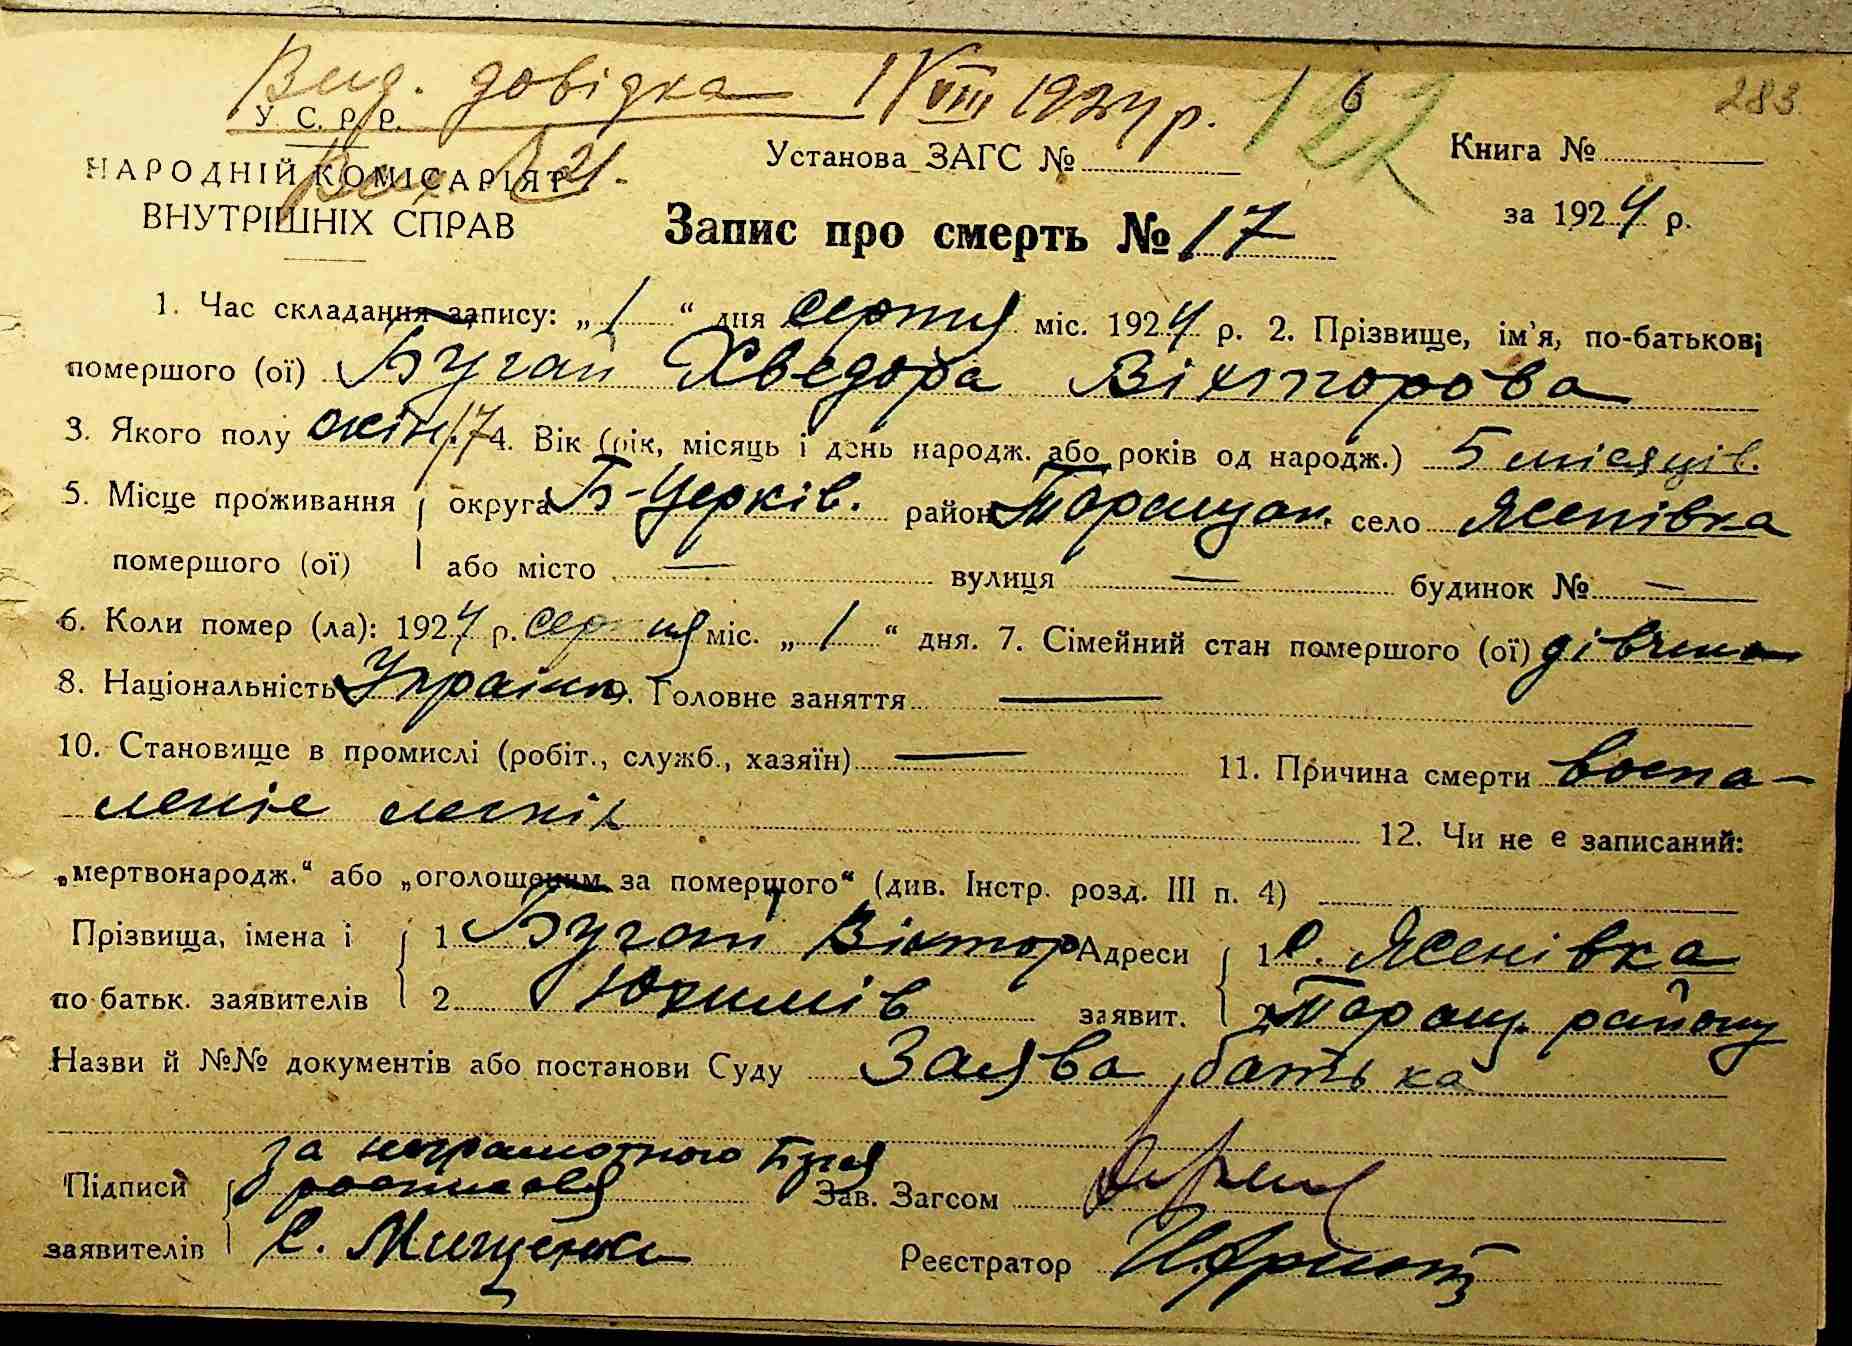 Вид. довідка 1/VIII 1924 р.
122
6
283
У. С. Р. Р.
НАРОДНІЙ КОМІСАРІЯТ
ВНУТРІШНІХ СПРАВ
Установа ЗАГС №
Книга №
за 1924 р.
Запис про смерть № 17
1. Час складання запису: „1“ дня серпня міс. 1924 р. 2. Прізвище, ім'я, по-батькові
помершого (ої) Бугай Хведора Вікторова
3. Якого полу жін. 4. Вік (рік, місяць і день народж. або років од народж.) 5 місяців.
5. Місце проживання округа Б-Церків. район Таращан. село Ясенівка
помершого (ої) або місто — вулиця — будинок № —
6. Коли помер (ла): 1924 р. серпня міс. „1“ дня. 7. Сімейний стан помершого (ої) дівчина
8. Національність Україн. 9. Головне заняття —
10. Становище в промислі (робіт., служб., хазяїн) — 11. Причина смерти воспа-
леніе легкіх
12. Чи не є записаний:
„мертвонародж.“ або „оголошеним за помершого“ (див. Інстр. розд. III п. 4)
Прізвища, імена і 1 Бугай Віктор Адреси 1 с. Ясенівка
по батьк. заявителів 2 Юхимів заявит. 2 Таращ. району
Назви й №№ документів або постанови Суду Заява батька
за неграмотного
Підписи росписався Зав. Загсом
заявителів С. Мищенко Реєстратор